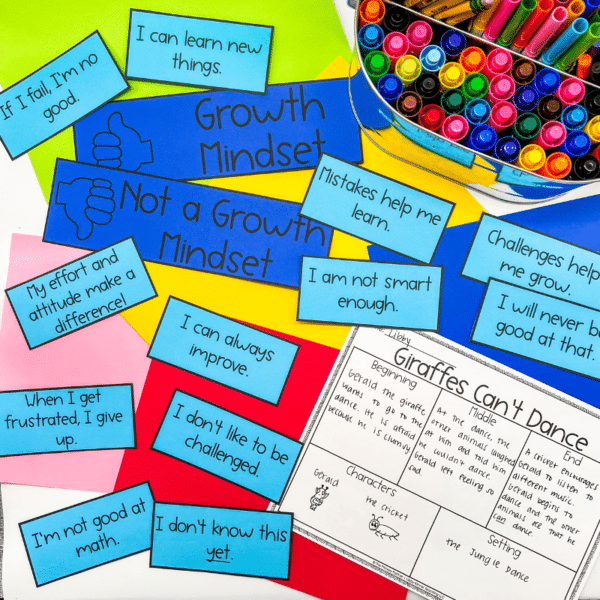 I can learn new
things.
If I fail, I'm no
good.
Growth
Mindset
Not a Growth
Mindset
Mistakes help me
learn.
Challenges help
me grow.
I am not smart
enough.
I will never be
good at that.
My effort and
attitude make a
difference!
I can always
improve.
When I get
frustrated, I give
up.
I don't like to be
challenged.
I'm not good at
math.
I don't know this
yet.
Libby
Giraffes Can't Dance
Beginning
Gerald the giraffe
wants to go to the
dance. He is afraid
because he is clumsy
Middle
At the dance, the
other animals laughed
at him and told him
he wouldn't dance.
Gerald left feeling so
sad
End
A cricket encourages
Gerald to listen to
different music.
Gerald begins to
dance and the other
animals see that he
can dance.
Characters
Gerald
the cricket
Setting
the Jungle Dance